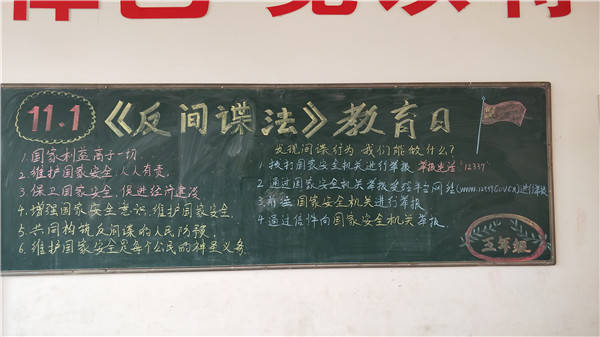 11.1《反间谍法》教育日
1.国家利益高于一切
2.维护国家安全,人人有责.
3.保卫国家安全,促进经济建设
4.增强国家安全意识,维护国家安全.
5.共同构筑反间谍的人民防线.
6.维护国家安全是每个公民的神圣义务.
发现间谍行为 我们能做什么?
1.拨打国家安全机关进行举报 举报电话"12337"
2.通过国家安全机关举报受理平台网站(www.12339.gov.cn)进行举报.
3.前往国家安全机关进行举报
4.通过信件向国家安全机关举报.
五年级